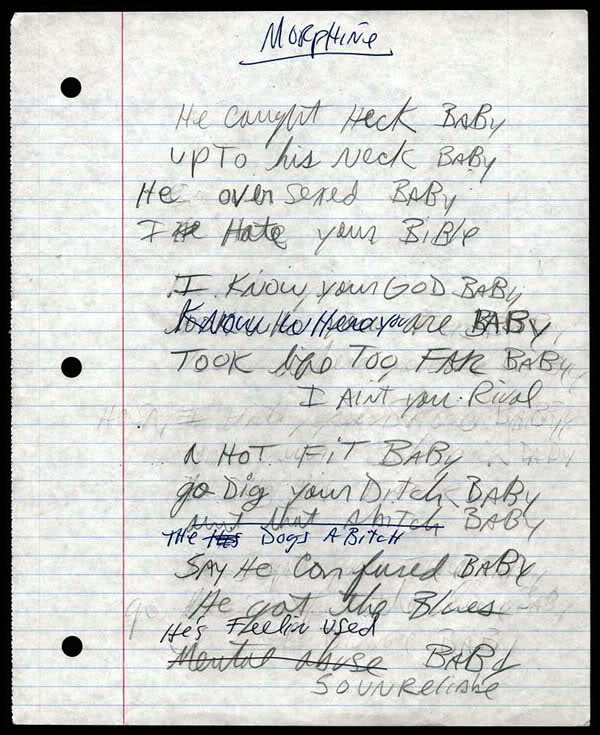 MORPHINE
He caught Heck BABy
UP To his Neck BABy
He over Sexed BABy
I Hate your BiBle
I Know your GOD BABy
Know who you are BABy
TOOK life Too FAR BABy
I Aint your Rival
A HOT FiT BABy
go Dig your Ditch BABy
aint that a bitch BABy
THE Dogs A BitcH
SAy He Confused BABy
He got the Blues
He's Feelin used
Mental abuse BABy
SO UNReliABle